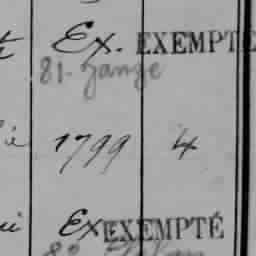 Ex. EXEMPTÉ
81. Janze
1799 4
Ex EXEMPTÉ